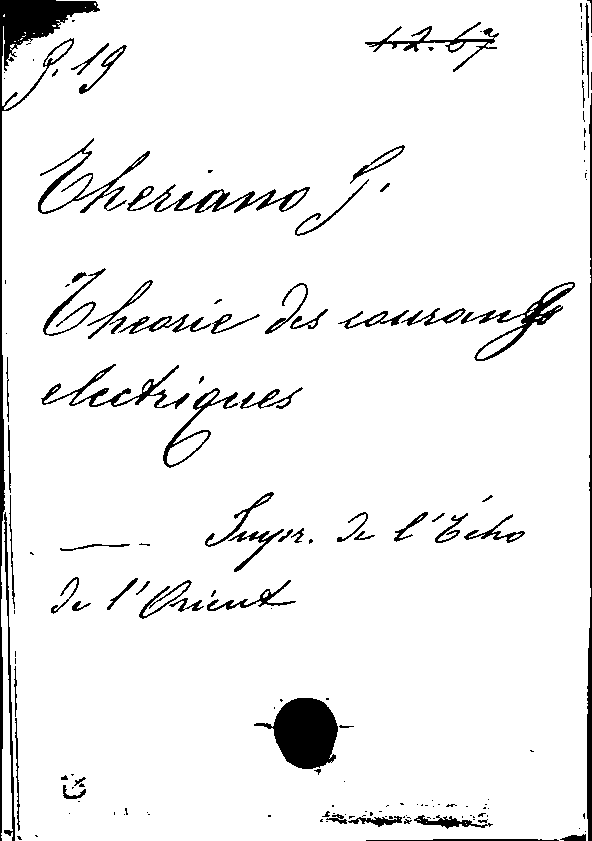 P. 19
1.2.67
Theriano G.
Theorie des courants
electriques
— Impr. de l'Écho
de l'Orient